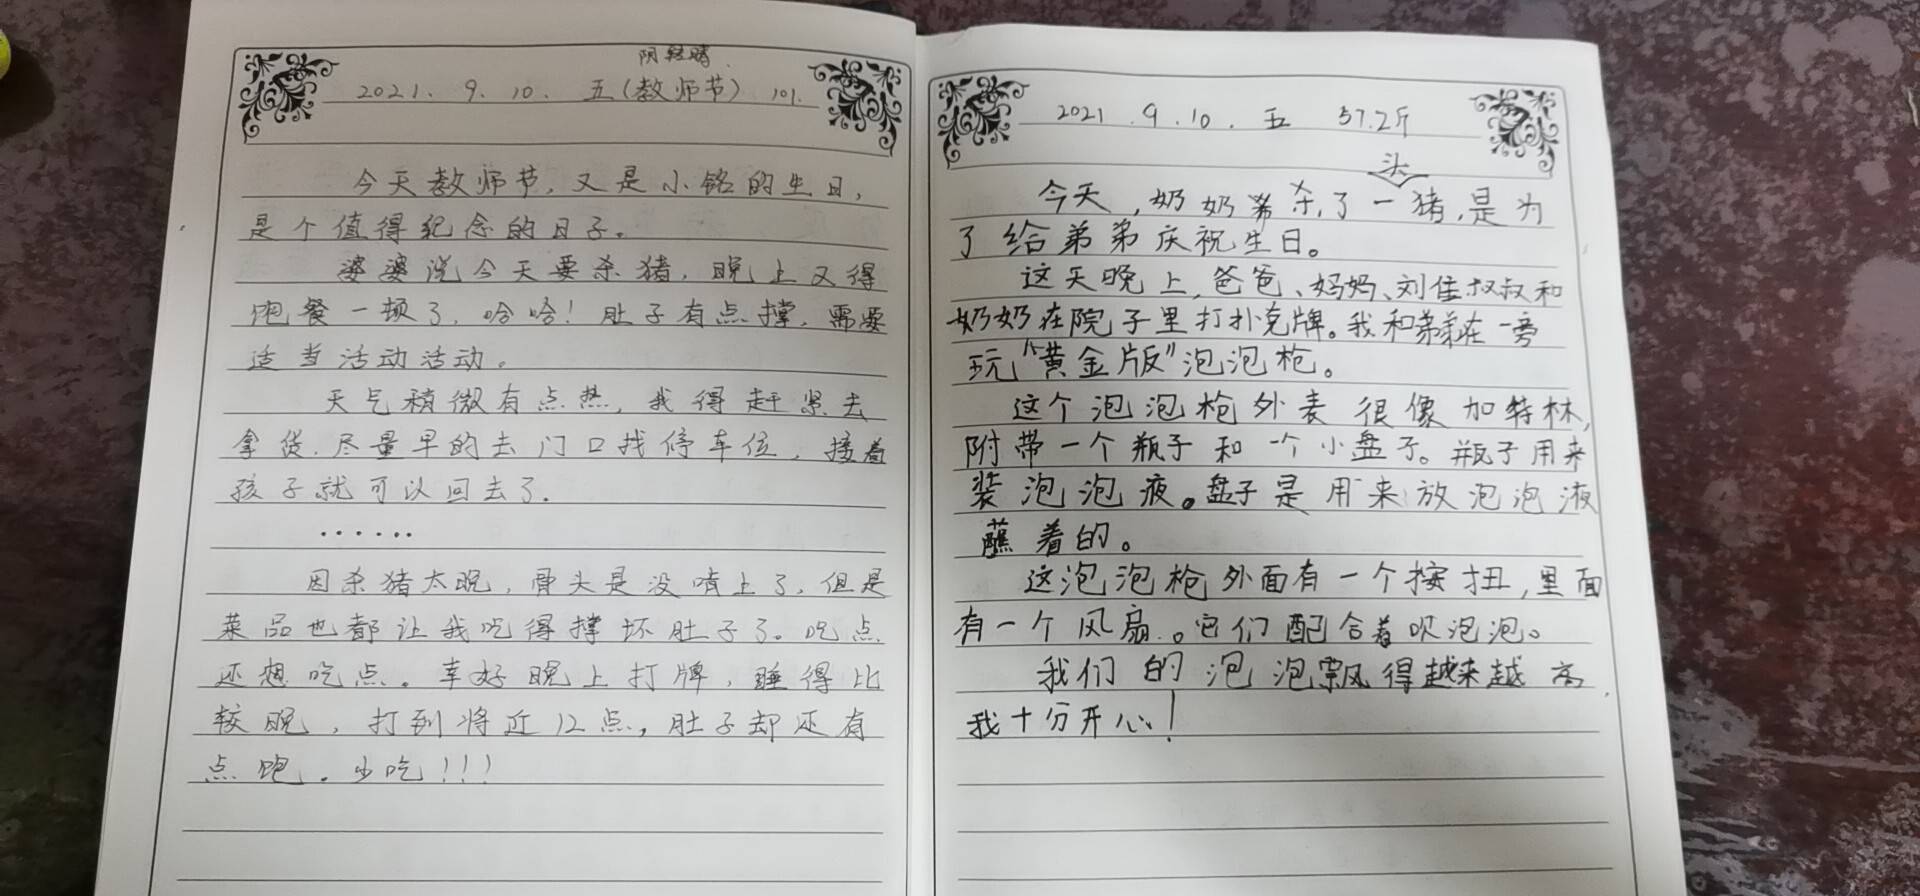 阴转晴
2021. 9. 10. 五(教师节) 101.
今天教师节,又是小铭的生日,
是个值得纪念的日子。
婆婆说今天要杀猪,晚上又得
饱餐一顿了,哈哈!肚子有点撑,需要
适当活动活动。
天气稍微有点热,我得赶紧去
拿货,尽量早的去门口找停车位,接着
孩子就可以回去了.
......
因杀猪太晚,骨头是没啃上了,但是
菜品也都让我吃得撑坏肚子了。吃点
还想吃点。幸好晚上打牌,睡得比
较晚,打到将近12点,肚子却还有
点饱。少吃!!!
2021.9.10.五 57.2斤
头
今天,奶奶杀了一猪,是为
了给弟弟庆祝生日。
这天晚上,爸爸、妈妈、刘佳叔叔和
奶奶在院子里打扑克牌。我和弟弟在一旁
玩“黄金版”泡泡枪。
这个泡泡枪外表很像加特林,
附带一个瓶子和一个小盘子。瓶子用来
装泡泡液。盘子是用来放泡泡液
蘸着的。
这泡泡枪外面有一个按扭,里面
有一个风扇.。它们配合着吹泡泡。
我们的泡泡飘得越来越高,
我十分开心!